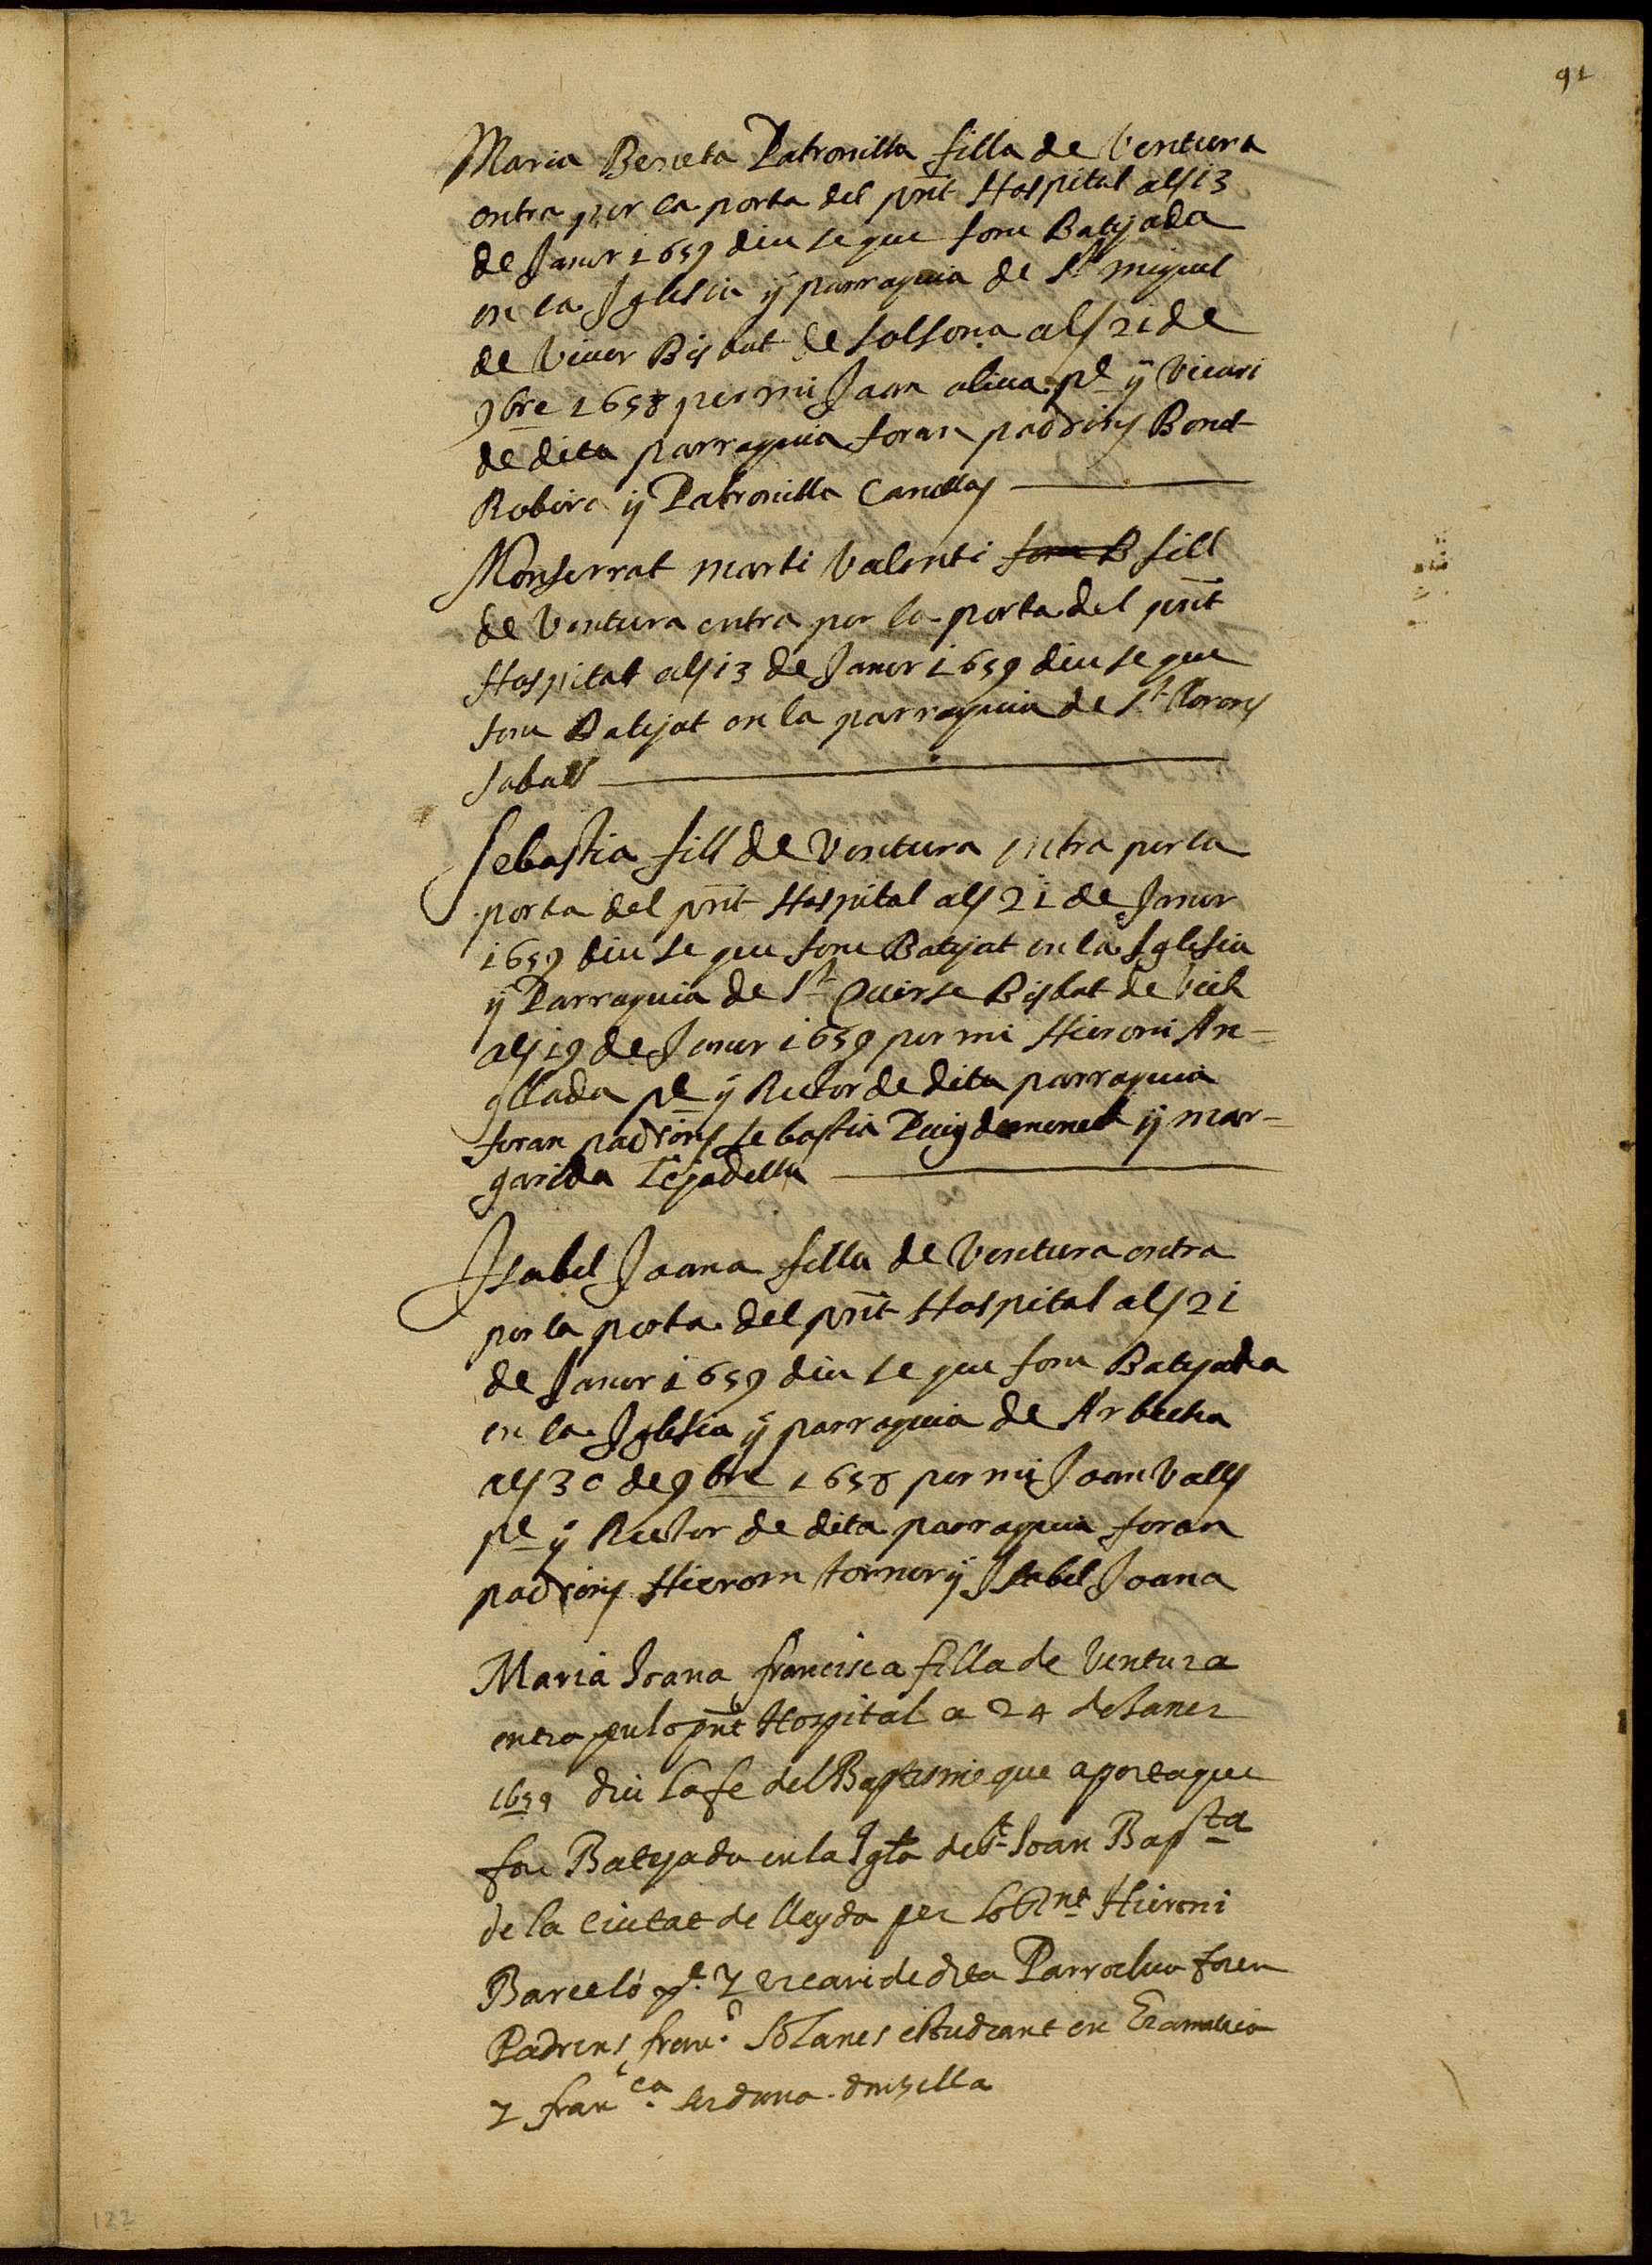 91
Maria Beneta Patronilla filla de Ventura
entra per la porta del pnt Hospital als 13
de Janer 1659 diu se que fonc Batejada
en la Iglesia ÿ parraquia de St miquel
de Viver Bisbat de Solsona als 21 de
9bre 1658 per mi Joan oliva pe ÿ Vicari
de dita parraquia foran padrins Benet
Robira ÿ Patronilla Canellas
Monserrat marti Valenti fonc B fill
de Ventura entra per la porta del pnt
Hospital als 13 de Janer 1659 diu se que
fonc Batejat en la parraquia de St llorens
Saball
Sebastia fill de Ventura entra per la
porta del pnt Hospital als 21 de Janer
1659 diu se que fonc Batejat en la Iglesia
ÿ Parraquia de St Quirse Bisbat de Vich
als 19 de Janer 1659 per mi Hieroni An=
gllada pe ÿ Rector de dita parraquia
foran padrins Sebastia Puigdemenet ÿ mar=
garida Tejadella
Isabel Joana filla de Ventura entra
per la porta del pnt Hospital als 21
de Janer 1659 diu se que fonc Batejada
en la Iglesia ÿ parraquia de Arbecha
als 30 de 9bre 1658 per mi Joan Valls
pe ÿ Rector de dita parraquia foran
padrins Hieroni torner ÿ Isabel Joana
Maria Joana francisca filla de Ventura
entra per lo pnt Hospital a 24 de Janer
1659 diu la fe del Baptisme que aporta que
fou Batejada en la Igla de St Joan Bapsta
de la ciutat de lleyda per lo Rnt Hieroni
Barceló pe. Y vicari de dita Parrochia foren
Padrins franc. Solanes estudiant en Gramatica
Y franca. Serdana donzella
122